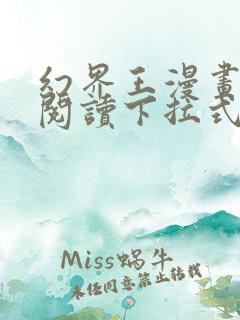 幻界王漫畫
閱讀下拉式
Miss蝸牛
未经同意禁止转载